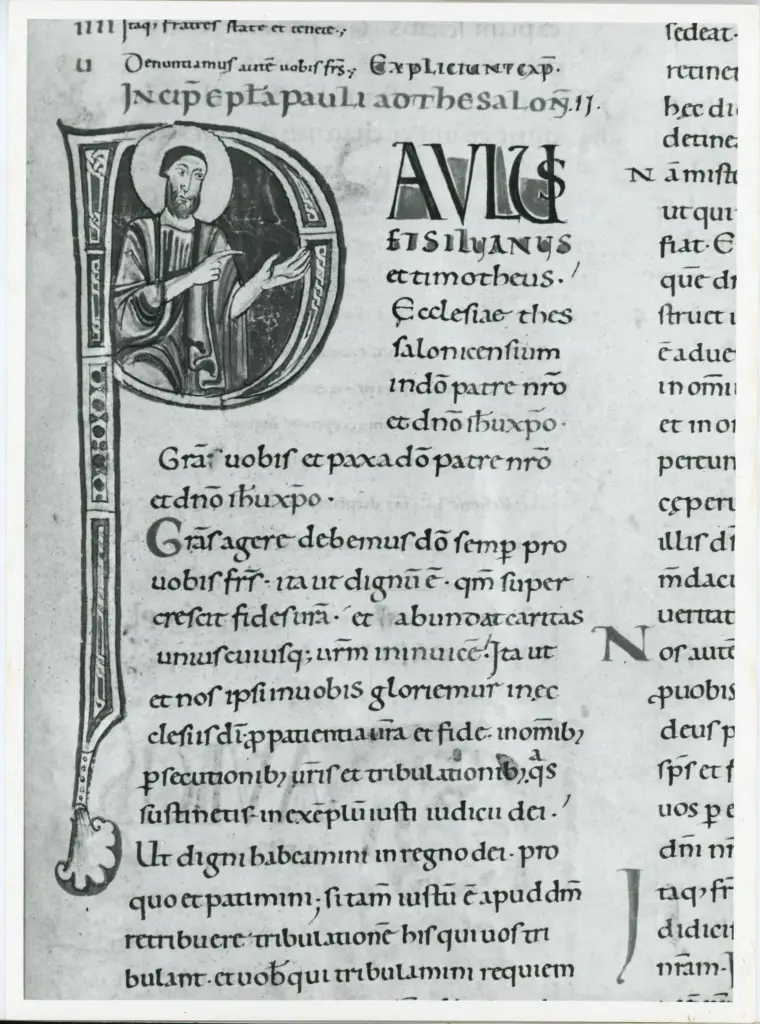 IIII Itaq; fratres state et tenete.;
U Denuntiamus autē vobis frs̄; EXPLICIUNT CAP̄.
INCIP̄ EPLĀ PAULI AD THESALOÑ. II.
PAULUS
ET SILVANUS
et timotheus.
Ecclesiae thes
salonicensium
in dō patre nrō
et dnō ihū xp̄o.
Grā vobis et pax a dō patre nrō
et dnō ihū xp̄o.
Grās agere debemus dō semp̄ pro
vobis frs̄. ita ut dignū ē. qm̄ super
crescit fides vrā. et abundat caritas
unius cuiusq; vrm̄ in invicē. Ita ut
et nos ipsi in vobis gloriemur in ec
clesiis dī. p patientia vrā et fide. in om̄ib;
p̱secutionib; vrīs et tribulationib; qas
sustinetis. in exēplū iusti iudicii dei.
Ut digni habeamini in regno dei. pro
quo et patimini; si tam̄ iustū ē apud dm̄
retribuere tribulationē his qui vos tri
bulant. et vob̄ qui tribulamini requiem
sedeat.
retinet
hęc di
detinea
N ā mist
ut qui
fiat. E
quē dn
struet i
ē adue
in om̄i
et in o
pereun
cęperu
illis d
m̄daci
veritat
Nos autē
p vobis
deus p
sp̄s et f
vos p e
dn̄i nr̄
Itaq; fr
didici
nrām.